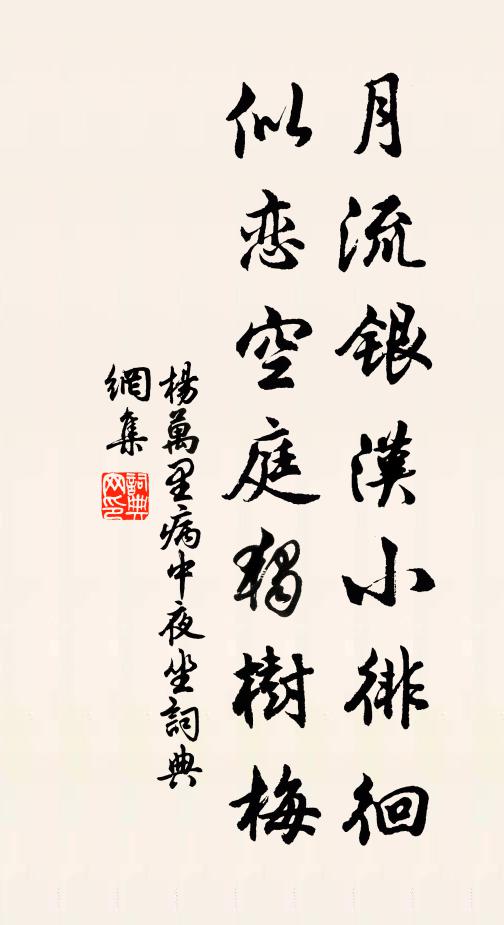 月流銀漢小徘徊
似恋空庭獨樹梅
楊萬里病中夜坐詞典
網集
詞典
网印